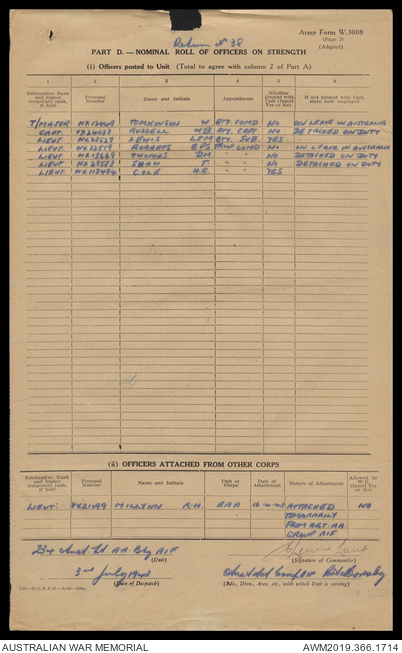 Army Form W.3008
(Page 2)
(Adapted)
Return Nº 38
PART D.—NOMINAL ROLL OF OFFICERS ON STRENGTH
(i) Officers posted to Unit (Total to agree with column 2 of Part A)
1 2 3 4 5 6
Substantive Rank and higher temporary rank, if held
Personal Number
Name and Initials
Appointment
Whether present with Unit (Insert Yes or No)
If not present with Unit, state how employed
T/MAJOR TOMKINSON W BTY. COMD NO ON LEAVE IN AUSTRALIA
CAPT. RUSSELL W.B. BTY. CAPT. NO DETACHED ON DUTY
LIEUT. LEWIS L.T.M. BTY. SUB. YES
LIEUT. ROBERTS E.P.S. TROOP COMD NO ON LEAVE IN AUSTRALIA
LIEUT. THOMAS D.M. " " NO DETACHED ON DUTY
LIEUT. SHAW T. " " NO DETACHED ON DUTY
LIEUT. COLE H.E. " " YES
(ii) OFFICERS ATTACHED FROM OTHER CORPS
Substantive Rank and higher temporary rank, if held
Personal Number
Name and Initials
Unit or Corps
Date of Attachment
Nature of Attachment
Allowed by W.E. (Insert Yes or No)
LIEUT. R.H. RAA ATTACHED NO
TEMPORARILY
FROM AUST. AA.
GROUP AIF
Aust. Lt. A.A. Bty AIF
(Unit)
(Signature of Commander)
3rd July
(Date of Despatch)
(Bde., Divn., Area, etc., with which Unit is serving)
AUSTRALIAN WAR MEMORIAL
AWM2019.366.1714